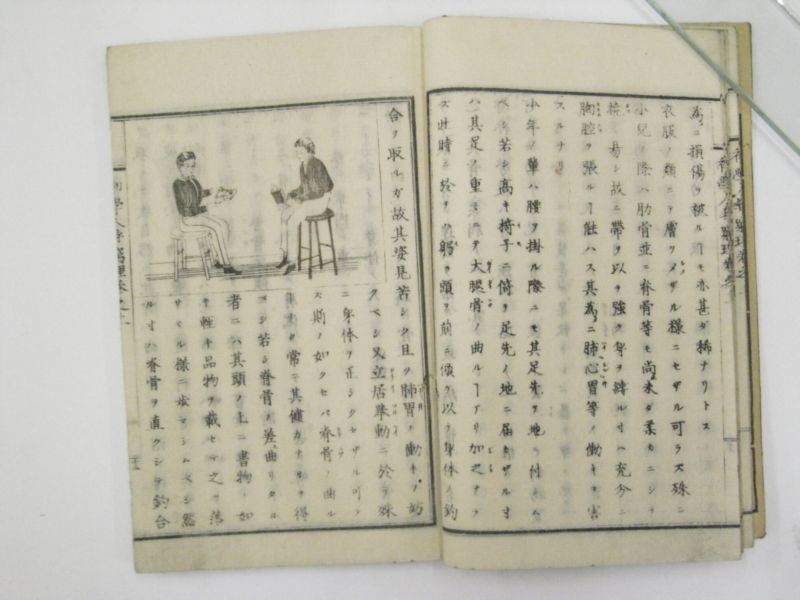 為ニ損傷ヲ被ルヿモ亦甚ダ稀ナリトス
衣服ノ類ニテ層ヲ ザル様ニセザル可ラズ殊ニ
小兒ノ際ハ肋骨並ニ脊骨等モ尚未ダ柔カニシテ
撓ミ易シ故ニ帯ヲ以テ強ク身ヲ縛ル寸ハ充分ニ
胸腔ヲ張ルヿ能ハス其為ニ肺心胃等ノ働キヲ害
スルナリ
少年ノ輩ハ腰ヲ掛ル際ニモ其足先ヲ地ニ付ケシム
ベシ若シ高キ椅子ニ倚テ足先ノ地ニ届カザル寸
ハ其足ノ重ミニテ大腿骨ノ曲ルヿアリ加之ナラ
ズ此時ニ於テハ躬ラ頭ヲ前ニ傾ケ以テ身体ノ釣
合ヲ取ルガ故其姿見苦シク且ツ肺胃ノ働キヲ妨
クベシ又立居挙動ニ於テ殊
ニ身体ヲ正シクセザル可ラ
ズ斯ノ如クセバ脊骨ノ曲ル
ヿナク常ニ其健カナルヲ得
ベシ若シ脊骨ノ差曲リタル
者ニハ其頭ノ上ニ書物ノ如
キ軽キ品物ヲ載セテ之ヲ落
サヾル様ニ歩マシムベシ然
ル寸ハ脊骨ヲ直クシテ釣合